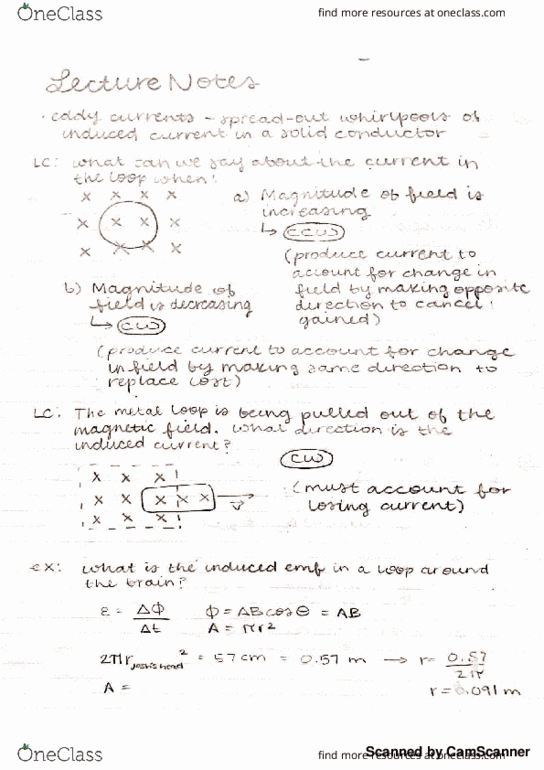 OneClass
find more resources at oneclass.com
Lecture Notes
· eddy currents - spread-out whirlpools of
induced current in a solid conductor
LC: what can we say about the current in
the loop when:
x x x x
a) Magnitude of field is
increasing
x x x x
↳ ccw
x x x x
(produce current to
account for change in
field by making opposite
direction to cancel
gained)
b) Magnitude of
field is decreasing
↳ cw
(produce current to account for change
in field by making same direction to
replace lost)
LC: The metal loop is being pulled out of the
magnetic field. What direction is the
induced current?
cw
x x x
x x x x x
v
x x x
(must account for
losing current)
ex: what is the induced emf in a loop around
the brain?
ε = ΔΦ/Δt
Φ = ABcosθ = AB
A = πr²
2πr josh's head ² = 57 cm = 0.57 m → r = 0.57/2π
A =
r = 0.091 m
OneClass
find more resources at oneclass.com
Scanned by CamScanner